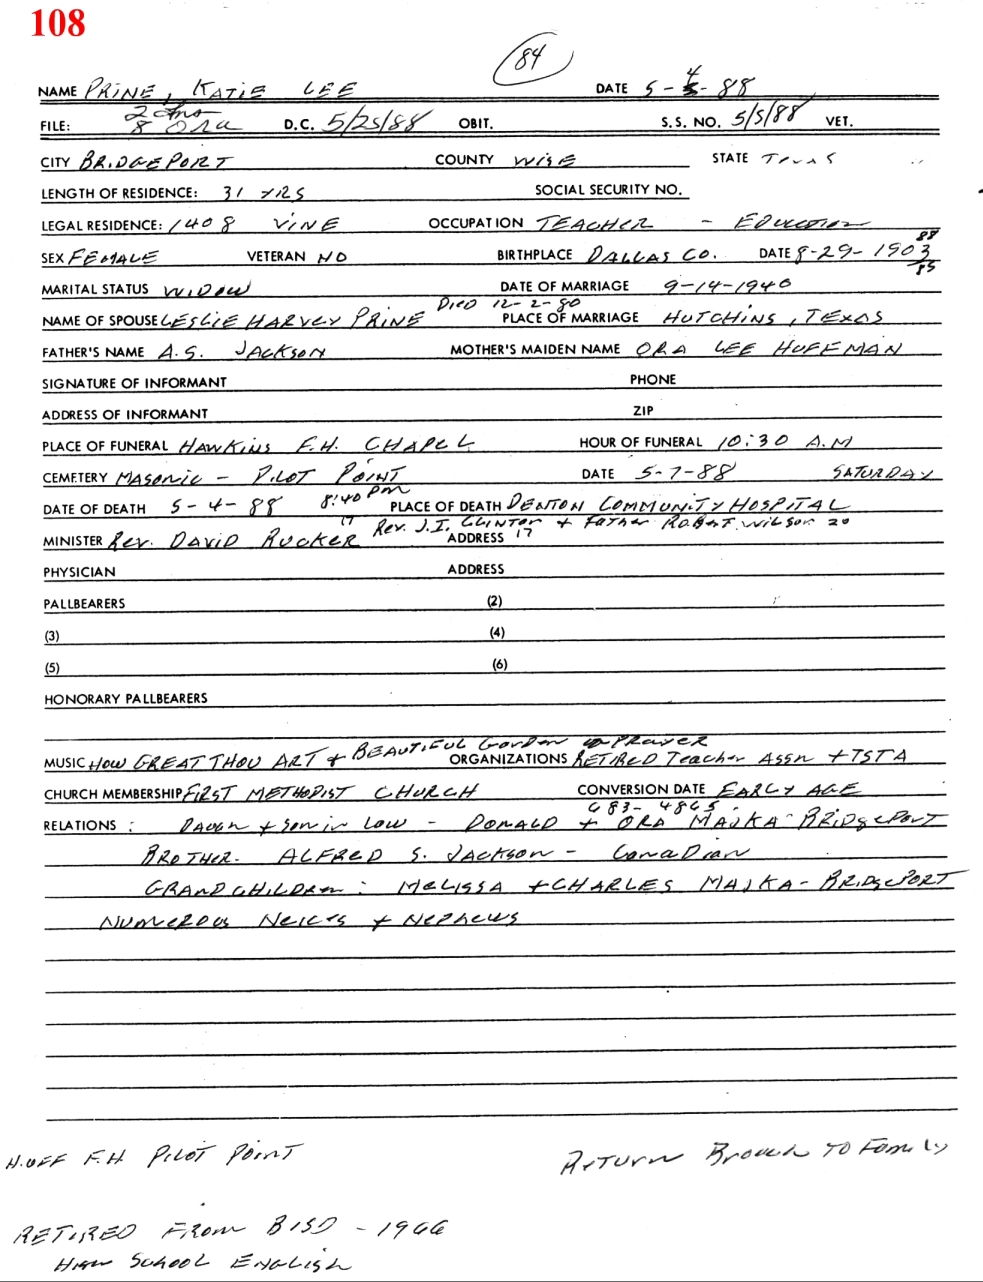 108
84
NAME PRINE, KATIE LEE DATE 5-4-88
FILE: 8 Ora D.C. 5/25/88 OBIT. S.S. NO. 5/5/88 VET.
CITY BRIDGEPORT COUNTY WISE STATE Texas
LENGTH OF RESIDENCE: 31 YRS SOCIAL SECURITY NO.
LEGAL RESIDENCE: 1408 VINE OCCUPATION TEACHER - EDUCATION
88
SEX FEMALE VETERAN NO BIRTHPLACE DALLAS CO. DATE 8-29-1903
85
MARITAL STATUS WIDOW DATE OF MARRIAGE 9-14-1940
DIED 12-2-80
NAME OF SPOUSE LESLIE HARVEY PRINE PLACE OF MARRIAGE HUTCHINS, TEXAS
FATHER'S NAME A.S. JACKSON MOTHER'S MAIDEN NAME ORA LEE HUFFMAN
SIGNATURE OF INFORMANT PHONE
ADDRESS OF INFORMANT ZIP
PLACE OF FUNERAL HAWKINS F.H. CHAPEL HOUR OF FUNERAL 10:30 A.M
CEMETERY MASONIC - PILOT POINT DATE 5-7-88 SATURDAY
DATE OF DEATH 5-4-88 8:40 pm PLACE OF DEATH DENTON COMMUNITY HOSPITAL
17 Rev. J.I. CLINTON + FATHER ROBERT WILSON 20
MINISTER Rev. DAVID RUCKER ADDRESS 17
PHYSICIAN ADDRESS
PALLBEARERS (2)
(3) (4)
(5) (6)
HONORARY PALLBEARERS
BEAUTIFUL Garden of PRAYER
MUSIC HOW GREAT THOU ART + ORGANIZATIONS RETIRED Teacher Assn + TSTA
CHURCH MEMBERSHIP FIRST METHODIST CHURCH CONVERSION DATE EARLY AGE
683-4865
RELATIONS: DAUGH + SON in LAW - DONALD + ORA MAJKA - BRIDGEPORT
BROTHER - ALFRED S. JACKSON - CANADIAN
GRANDCHILDREN: MELISSA + CHARLES MAJKA - BRIDGEPORT
NUMEROUS NEICES + NEPHEWS
HUFF F.H PILOT POINT
RETURN Brooch TO Family
RETIRED FROM BISD - 1966
HIGH SCHOOL ENGLISH